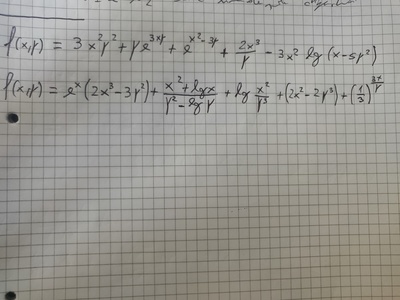 f(x,y) = 3x²y² + ye^{3xy} + e^{x²-3y} + \frac{2x³}{y} - 3x² · lg(x-5y²)
f(x,y) = e^x(2x³-3y²) + \frac{x²+lgx}{y²-lgy} + lg\frac{x²}{y³} + (2x²-2y³) + (\frac{1}{3})^{\frac{3x}{y}}